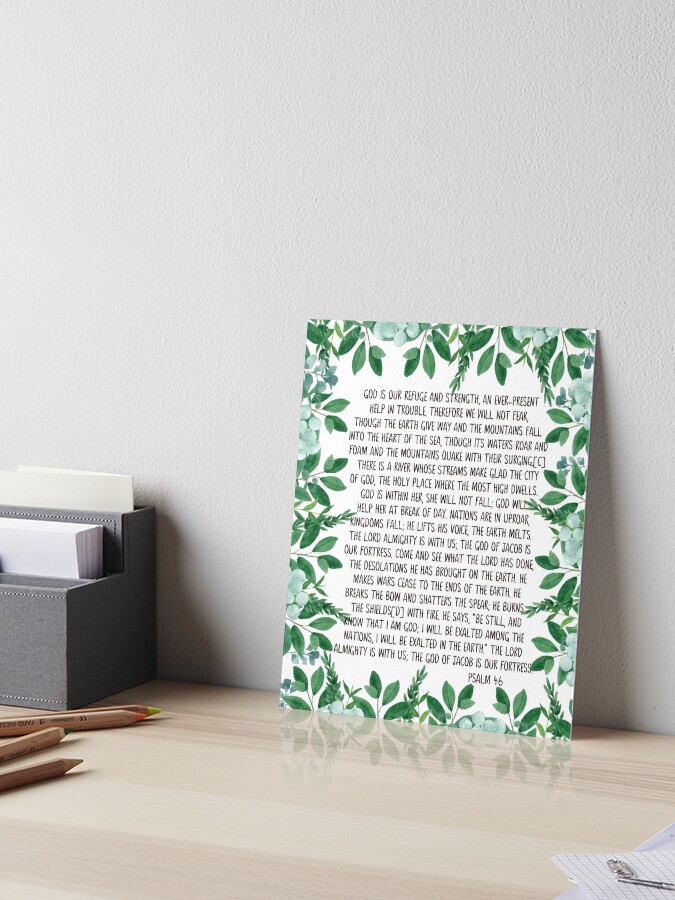 GOD IS OUR REFUGE AND STRENGTH, AN EVER-PRESENT
HELP IN TROUBLE. THEREFORE WE WILL NOT FEAR,
THOUGH THE EARTH GIVE WAY AND THE MOUNTAINS FALL
INTO THE HEART OF THE SEA, THOUGH ITS WATERS ROAR AND
FOAM AND THE MOUNTAINS QUAKE WITH THEIR SURGING.[C]
THERE IS A RIVER WHOSE STREAMS MAKE GLAD THE CITY
OF GOD, THE HOLY PLACE WHERE THE MOST HIGH DWELLS.
GOD IS WITHIN HER, SHE WILL NOT FALL; GOD WILL
HELP HER AT BREAK OF DAY. NATIONS ARE IN UPROAR,
KINGDOMS FALL; HE LIFTS HIS VOICE, THE EARTH MELTS.
THE LORD ALMIGHTY IS WITH US; THE GOD OF JACOB IS
OUR FORTRESS. COME AND SEE WHAT THE LORD HAS DONE,
THE DESOLATIONS HE HAS BROUGHT ON THE EARTH. HE
MAKES WARS CEASE TO THE ENDS OF THE EARTH. HE
BREAKS THE BOW AND SHATTERS THE SPEAR; HE BURNS
THE SHIELDS[D] WITH FIRE. HE SAYS, "BE STILL, AND
KNOW THAT I AM GOD; I WILL BE EXALTED AMONG THE
NATIONS, I WILL BE EXALTED IN THE EARTH." THE LORD
ALMIGHTY IS WITH US; THE GOD OF JACOB IS OUR FORTRESS.
PSALM 46